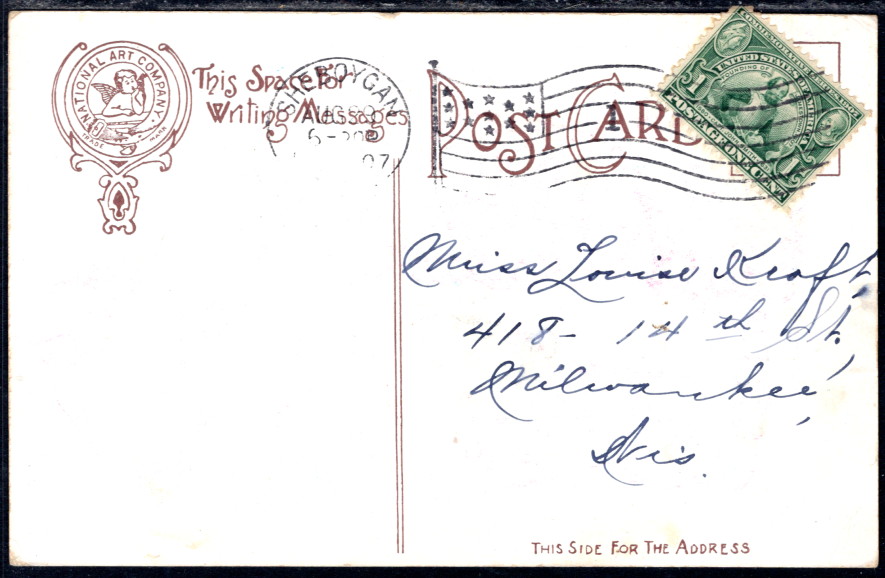 NATIONAL ART COMPANY.
TRADE MARK
This Space For
Writing Messages
SHEBOYGAN
AUG
07
POST CARD
1
UNITED STATES OF AMERICA
FOUNDING OF
POSTAGE ONE CENT
1
Miss Louise Kraft,
418 - 14th St,
Milwaukee,
Wis.
THIS SIDE FOR THE ADDRESS